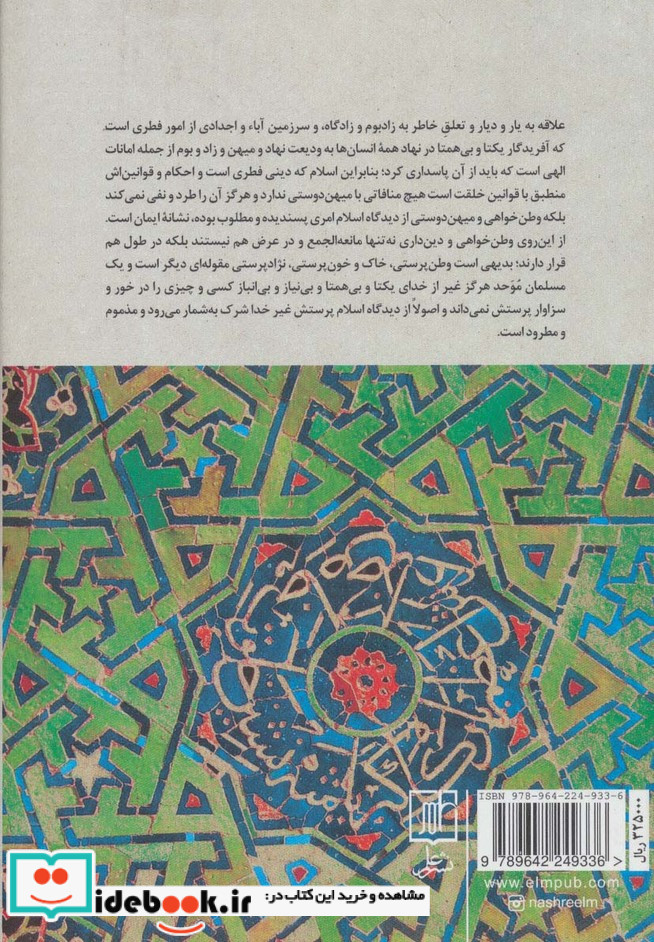 علاقه به یار و دیار و تعلقِ خاطر به زادبوم و زادگاه، و سرزمین آباء و اجدادی از امور فطری است.
که آفریدگار یکتا و بی‌همتا در نهاد همهٔ انسان‌ها به ودیعت نهاد و میهن و زاد و بوم از جمله امانات
الهی است که باید از آن پاسداری کرد؛ بنابراین اسلام که دینی فطری است و احکام و قوانین‌اش
منطبق با قوانین خلقت است هیچ منافاتی با میهن‌دوستی ندارد و هرگز آن را طرد و نفی نمی‌کند
بلکه وطن‌خواهی و میهن‌دوستی از دیدگاه اسلام امری پسندیده و مطلوب بوده، نشانهٔ ایمان است.
از این‌روی وطن‌خواهی و دین‌داری نه‌تنها مانعه‌الجمع و در عرض هم نیستند بلکه در طول هم
قرار دارند؛ بدیهی است وطن‌پرستی، خاک و خون‌پرستی، نژادپرستی مقوله‌ای دیگر است و یک
مسلمان مُوَحد هرگز غیر از خدای یکتا و بی‌همتا و بی‌نیاز و بی‌انباز کسی و چیزی را در خور و
سزاوار پرستش نمی‌داند و اصولاً از دیدگاه اسلام پرستش غیر خدا شرک به‌شمار می‌رود و مذموم
و مطرود است.
ISBN 978-964-224-933-6
9 789642 249336 >
۳۲۵۰۰۰ ریال
علم
نشر
www.elmpub.com
nashreelm
مشاهده و خرید این کتاب در:
idebook.ir